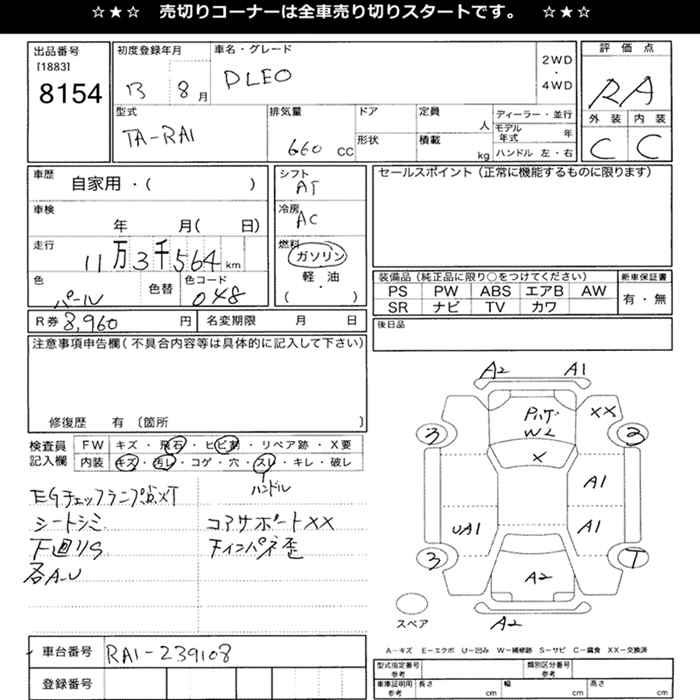 ☆★☆ 売切りコーナーは全車売り切りスタートです。 ☆★☆
出品番号
[1883]
8154
初度登録年月
13 8 月
車名・グレード
PLEO
2WD
・
4WD
評価点
RA
外装 内装
C C
型式
TA-RA1
排気量
660 CC
ドア
形状
定員
人
積載
kg
ディーラー・並行
モデル年式 年
ハンドル 左・右
車歴
自家用・( )
車検
年 月( 日)
走行
11万3千564 km
色
パール
色替
色コード
048
シフト
AT
冷房
AC
燃料
ガソリン
・
軽油
( )
セールスポイント(正常に機能するものに限ります)
装備品(純正品に限り○をつけてください)
PS PW ABS エアB AW
SR ナビ TV カワ
新車保証書
有・無
R券 8,960 円
名変期限 月 日
後日品
注意事項申告欄(不具合内容等は具体的に記入して下さい)
修復歴 有 〔箇所 〕
検査員
記入欄
FW キズ・飛石・ヒビ割・リペア跡・X要
内装 キズ・汚レ・コゲ・穴・スレ・キレ・破レ
ハンドル
EGチェックランプ点XT
シートシミ
下廻りS
各A-U
コアサポートXX
下インパネ歪
A2 A1
パイプ
W2
XX
3 2
X
A1
UA1 A1
3 T
A2
スペア
A2
A−キズ E−エクボ U−凹み W−補修跡 S−サビ C−腐食 XX−交換済
車台番号 RA1-239108
登録番号
型式指定番号
参考
類別区分番号
参考
車庫証明用
参考
長さ cm 幅 cm 高さ cm